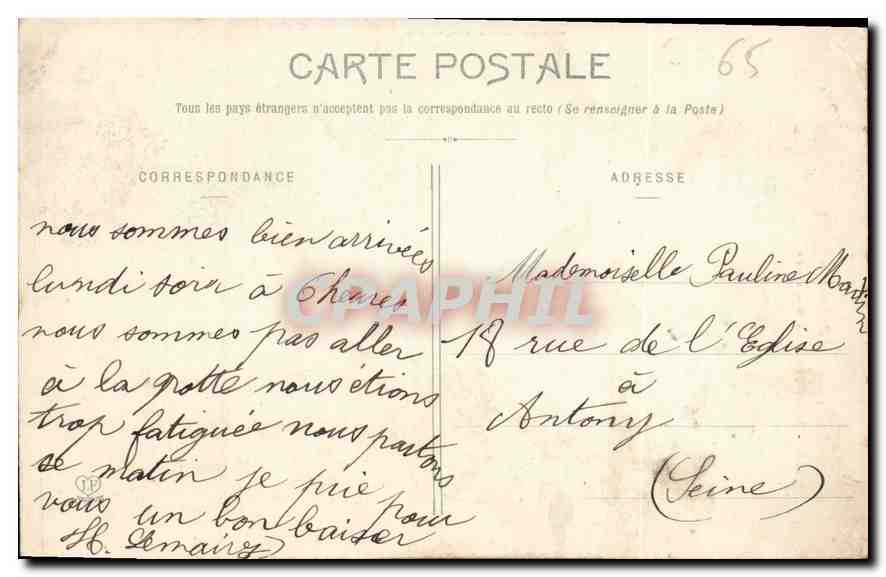 65
CARTE POSTALE
Tous les pays étrangers n'acceptent pas la correspondance au recto (Se renseigner à la Poste)
CORRESPONDANCE
nous sommes bien arrivées
lundi soir à 6 heures
nous sommes pas aller
à la grotte nous étions
trop fatiguée nous partons
se matin je prie pour
vous un bon baiser
H. Lemaire
ADRESSE
Mademoiselle Pauline Martin
18 rue de l'Eglise
à
Antony
(Seine)
CPAPHIL